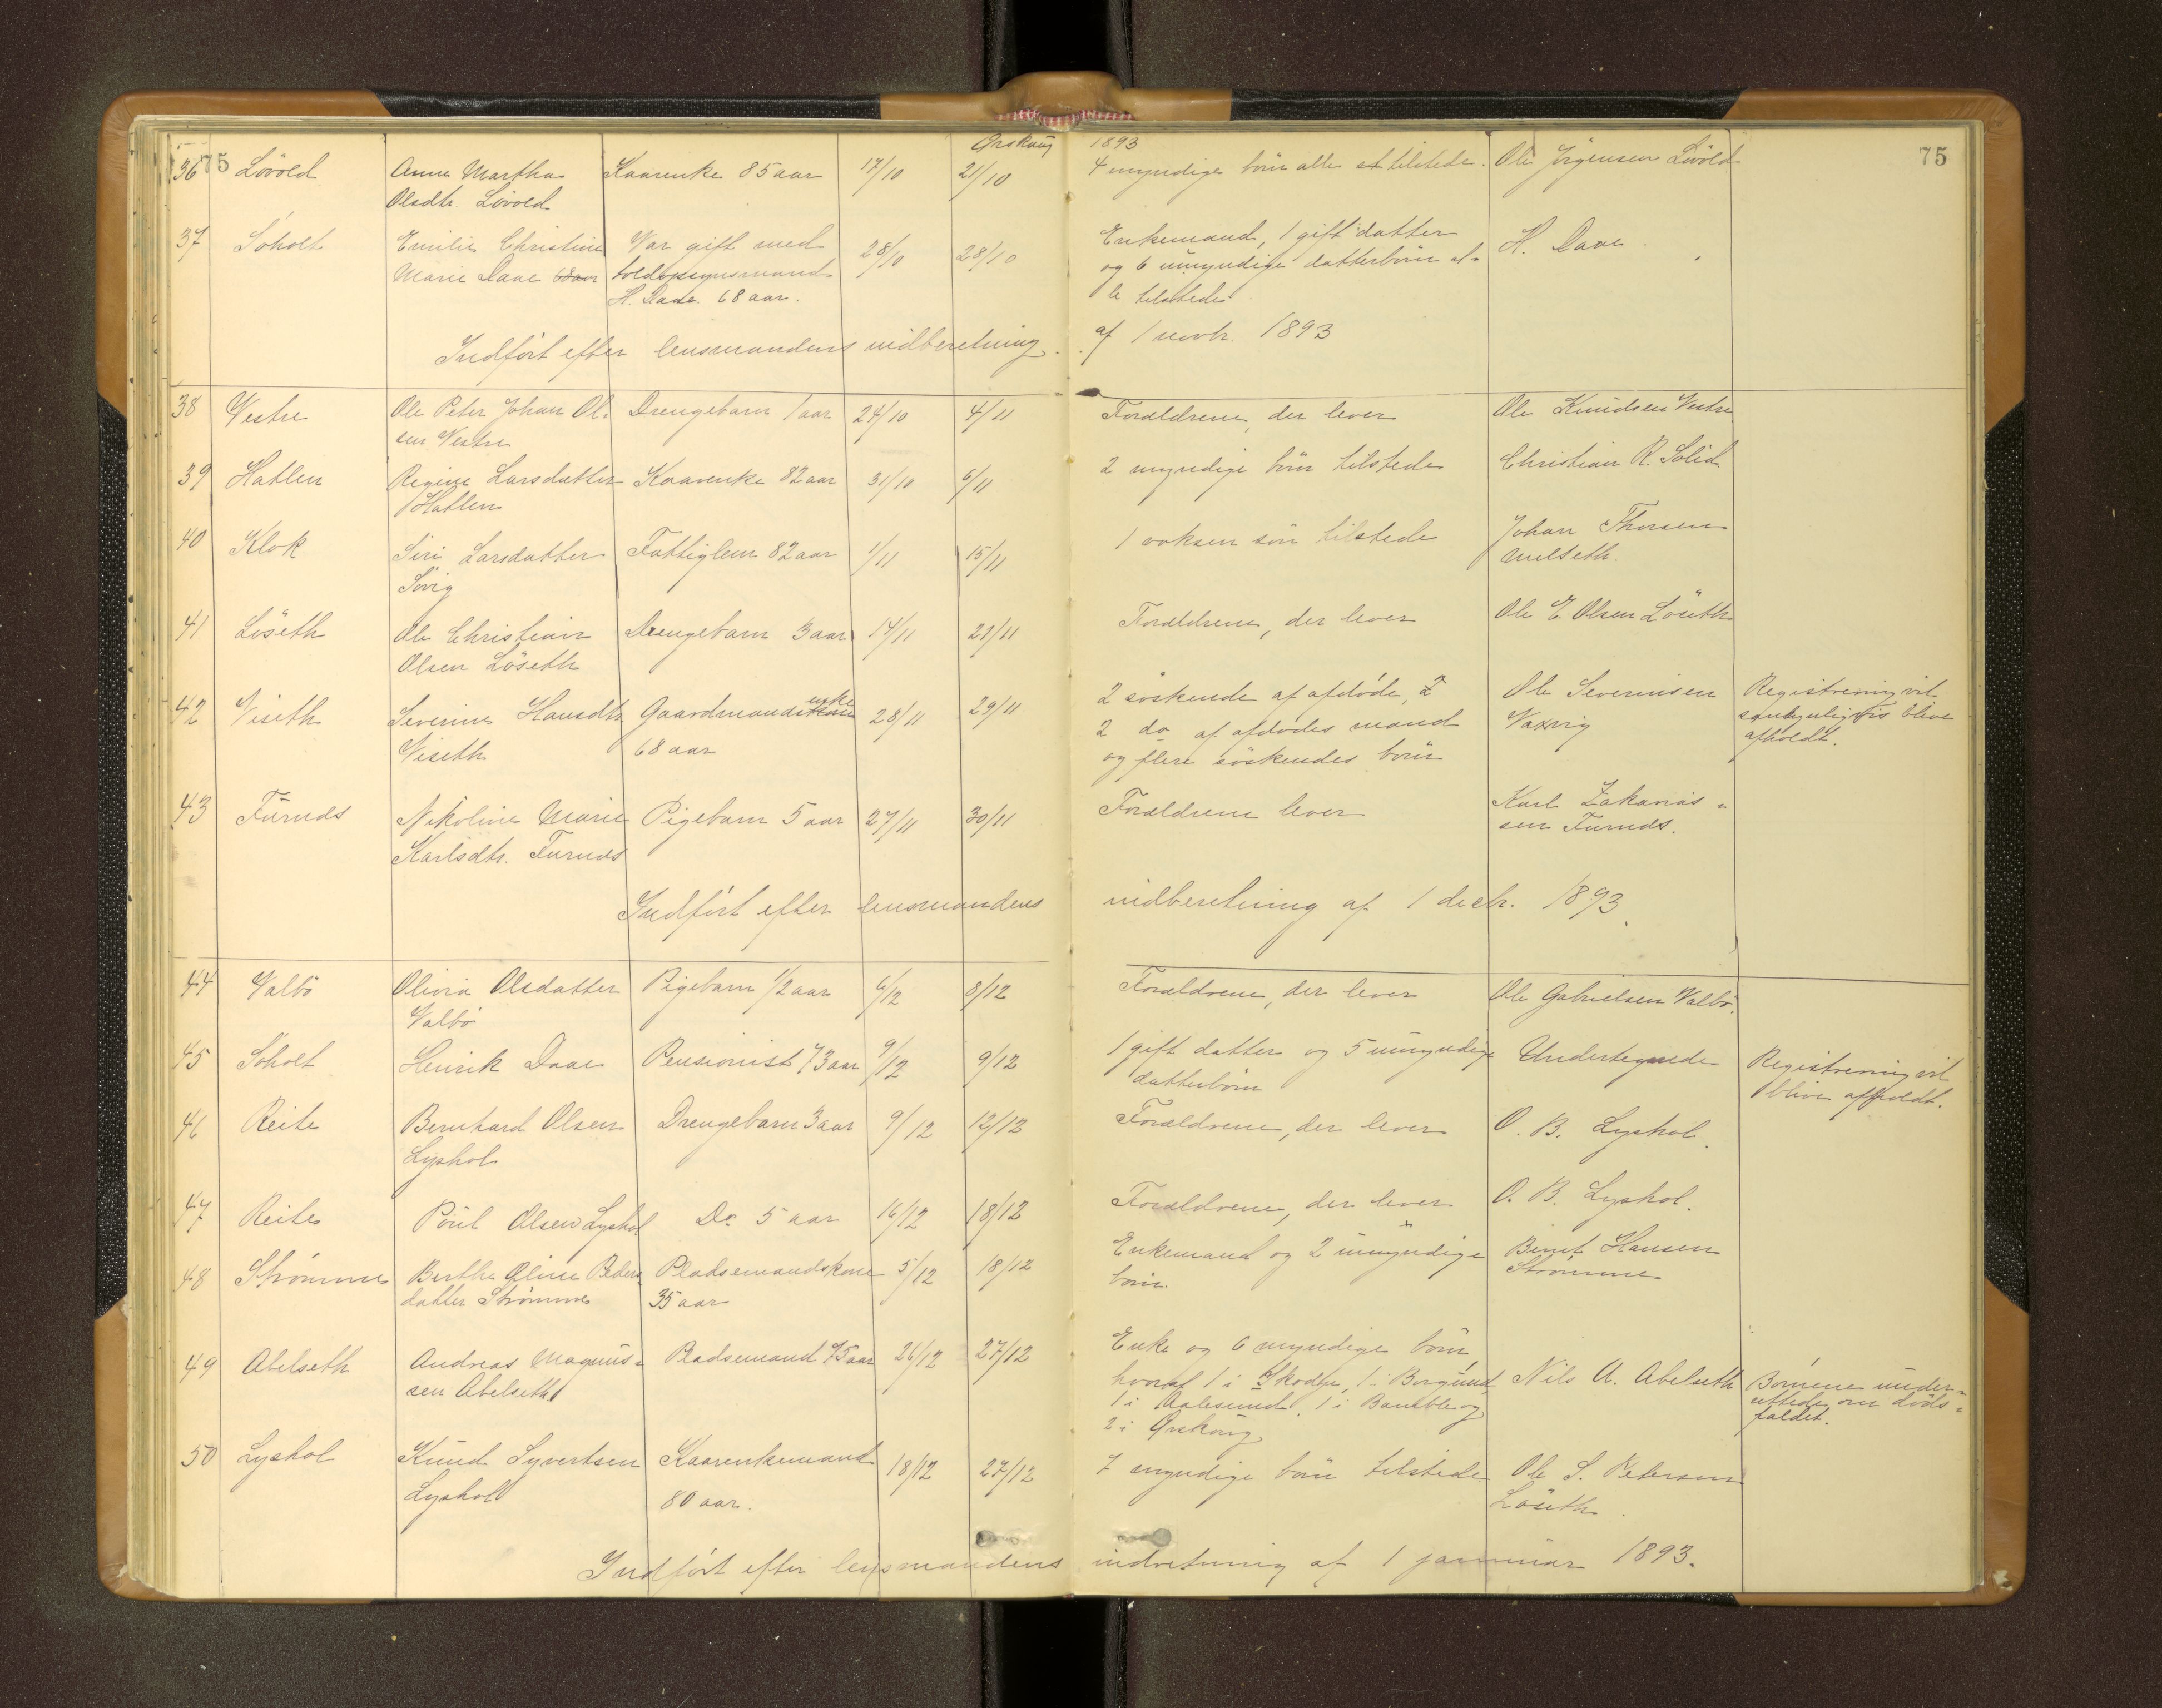 Ørskoug 1893
75
75
36 Lövold Anne Martha Kaarenke 85 aar 17/10 21/10 4 myndige börn alle tilstede. Ole Jörgensen Lövold
Olsdtr. Lövold
37 Söholt Emilie Christine Var gift med 28/10 28/10 Enkemand, 1 gift datter H. Daae.
Marie Daae 68 aar toldopsynsmand og 6 umyndige datterbörn al-
H. Daae. 68 aar. le tilstede
Indført efter lensmandens indberetning af 1 novbr. 1893
38 Vestre Ole Peter Johan Ol- Drengebarn 1 aar 24/10 4/11 Forældrene, der lever Ole Knudsen Vestre
sen Vestre
39 Hatlen Regine Larsdatter Kaarenke 82 aar 31/10 6/11 2 myndige börn tilstede Christian R. Solid
Hatlen
40 Klok Siri Larsdatter Fattiglem 82 aar 1/11 15/11 1 voksen sön tilstede Johan Thorsen
Sövig Melseth.
41 Löseth Ole Christian Drengebarn 3 aar 14/11 21/11 Forældrene, der lever Ole E. Olsen Löseth
Olsen Löseth
42 Viseth Severine Hansdtr. Gaardmandsenke 28/11 29/11 2 söskende af afdöde, Ole Severinsen Registrering vil
Viseth 68 aar 2 do af afdödes mand Vaxvig sandsynligvis blive
og flere söskendes börn afholdt.
43 Furnæs Nikoline Marie Pigebarn 5 aar 27/11 30/11 Forældrene lever Karl Zakarias-
Karlsdtr. Furnæs sen Furnæs.
Indfört efter lensmandens indberetning af 1 decbr. 1893.
44 Valbö Olivia Olsdatter Pigebarn 1/2 aar 6/12 8/12 Forældrene, der lever Ole Gabrielsen Valbö.
Valbö
45 Söholt Henrik Daae Pensionist 73 aar 9/12 9/12 1 gift datter og 5 umyndige Undertegnede Registrering vil
datterbörn blive afholdt.
46 Reite Bernhard Olsen Drengebarn 3 aar 9/12 12/12 Forældrene, der lever O. B. Lyshol.
Lyshol
47 Reite Poul Olsen Lyshol Do 5 aar 16/12 18/12 Forældrene, der lever O. B. Lyshol.
48 Strömme Berthe Oline Peders- Pladsemandskone 5/12 18/12 Enkemand og 2 umyndige Bernt Hansen
datter Strömme 35 aar börn. Strömme
49 Abelseth Andreas Magnus- Pladsemand 75 aar 26/12 27/12 Enke og 6 myndige börn,
sen Abelseth hvoraf 1 i Skodje, 1 i Borgund, Nils A. Abelseth Börnene under-
1 i Aalesund, 1 i Bamble og rettede om döds-
2 i Ørskoug faldet.
50 Lyshol Knud Syvertsen Kaarenkemand 18/12 27/12 7 myndige börn tilstede Ole S. Petersen
Lyshol 80 aar. Löseth.
Indfört efter lensmandens indretning af 1 januar 1893.